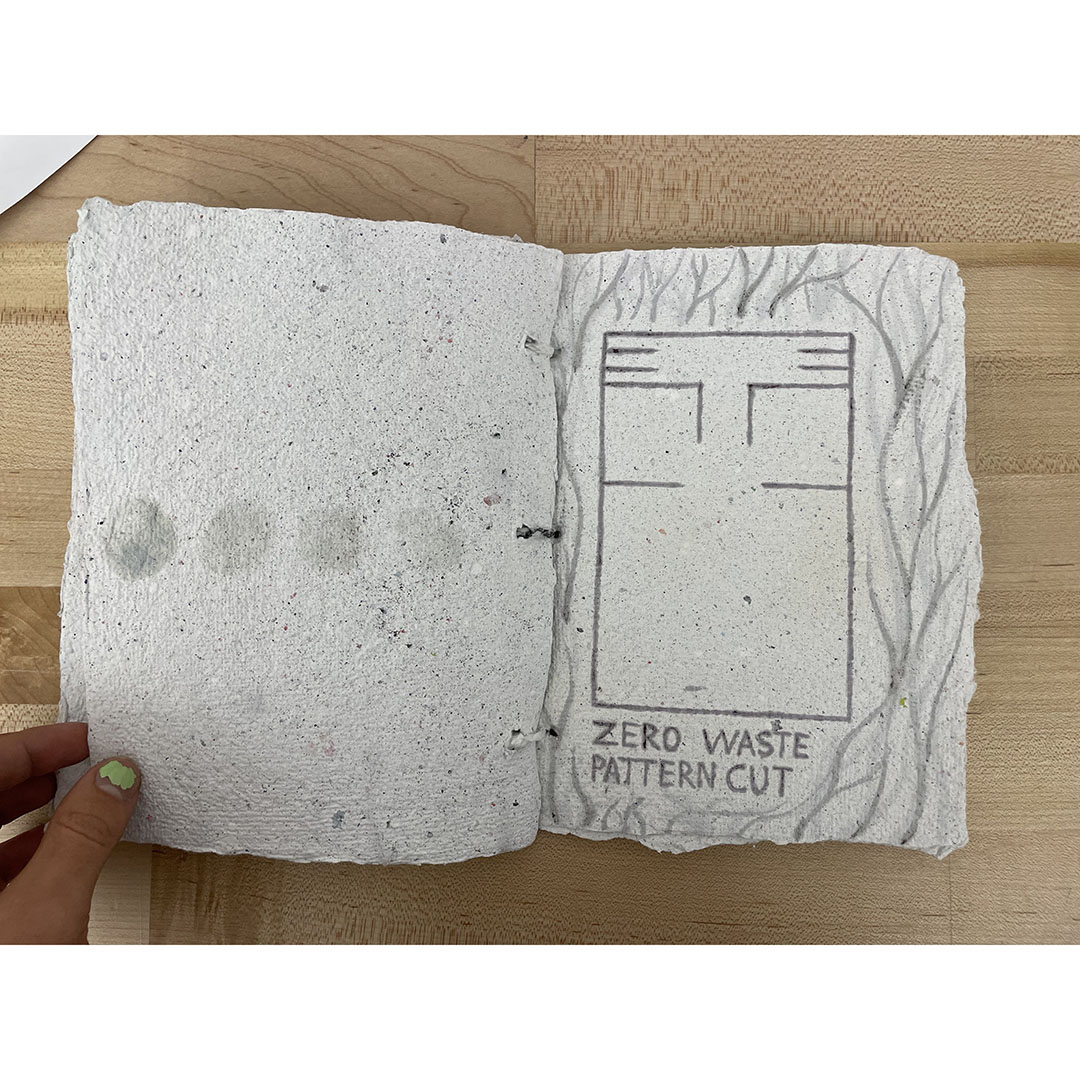 ZERO WASTE
PATTERN CUT